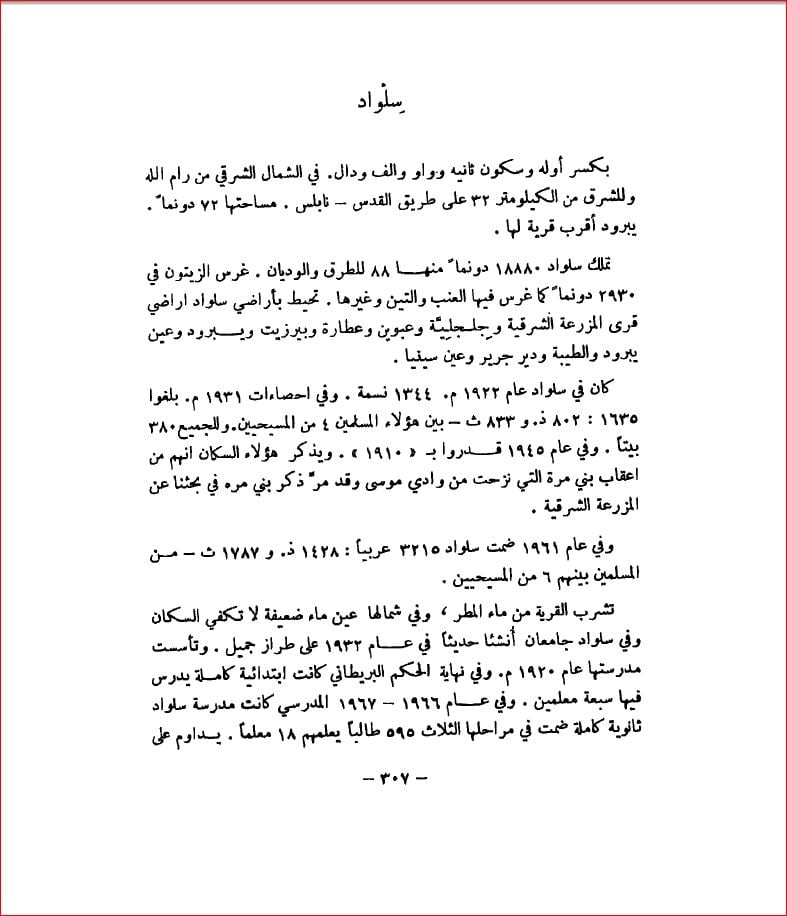 سِلْواد
بكسر أوله وسكون ثانيه وواو والف ودال. في الشمال الشرقي من رام الله
وللشرق من الكيلومتر ٣٢ على طريق القدس – نابلس . مساحتها ٧٢ دونماً .
يبرود أقرب قرية لها .
تملك سلواد ١٨٨٨٠ دونماً منهـــا ٨٨ للطرق والوديان . غرس الزيتون في
٢٩٣٠ دونماً كما غرس فيها العنب والتين وغيرها . تحيط بأراضي سلواد اراضي
قرى المزرعة الشرقية وجِلـجلِيَّة وعبوين وعطارة وبيرزيت ويـــبرود وعين
يبرود والطيبة ودير جرير وعين سينيا .
كان في سلواد عام ١٩٢٢ م. ١٣٤٤ نسمة . وفي احصاءات ١٩٣١ م. بلغوا
١٦٣٥ : ٨٠٢ ذ. و ٨٣٣ ث – بين هؤلاء المسلمين ٤ من المسيحيين. وللجميع ٣٨٠
بيتاً . وفي عام ١٩٤٥ قـــدروا بـ « ١٩١٠ » . ويذكر هؤلاء السكان انهم من
اعقاب بني مرة التي نزحت من وادي موسى وقد مرَّ ذكر بني مره في بحثنا عن
المزرعة الشرقية .
وفي عام ١٩٦١ ضمت سلواد ٣٢١٥ عربياً : ١٤٢٨ ذ. و ١٧٨٧ ث – مــن
المسلمين بينهم ٦ من المسيحيين .
تشرب القرية من ماء المطر ، وفي شمالها عين ماء ضعيفة لا تكفي السكان
وفي سلواد جامعان أنشئا حديثاً في عـــام ١٩٣٢ على طراز جميل . وتأسست
مدرستها عام ١٩٢٠ م. وفي نهاية الحكم البريطاني كانت ابتدائية كاملة يدرس
فيها سبعة معلمين . وفي عـــام ١٩٦٦ – ١٩٦٧ المدرسي كانت مدرسة سلواد
ثانوية كاملة ضمت في مراحلها الثلاث ٥٩٥ طالباً يعلمهم ١٨ معلماً . يـــداوم على
– ٣٠٧ –